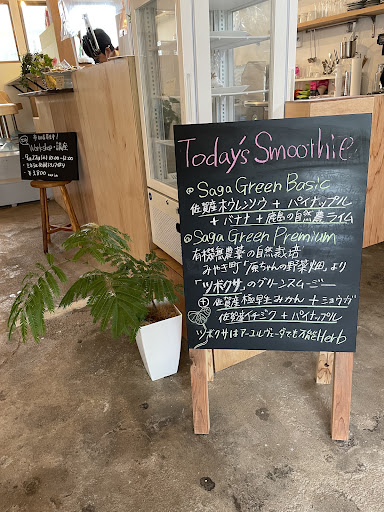 Today's Smoothie
Saga Green Basic
佐賀産ホウレンソウ + パイナップル
+ バナナ + 鹿島の自然農ライム
Saga Green Premium
有機無農薬の自然栽培
みやき町「原ちゃんの野菜畑」より
「ツボクサ」のグリーンスムージー
+ 佐賀産極早生みかん + ミョウガ
佐賀産イチジク + パイナップル
ツボクサはアーユルヴェーダでも万能Herb
Workshop・講座
¥3,800